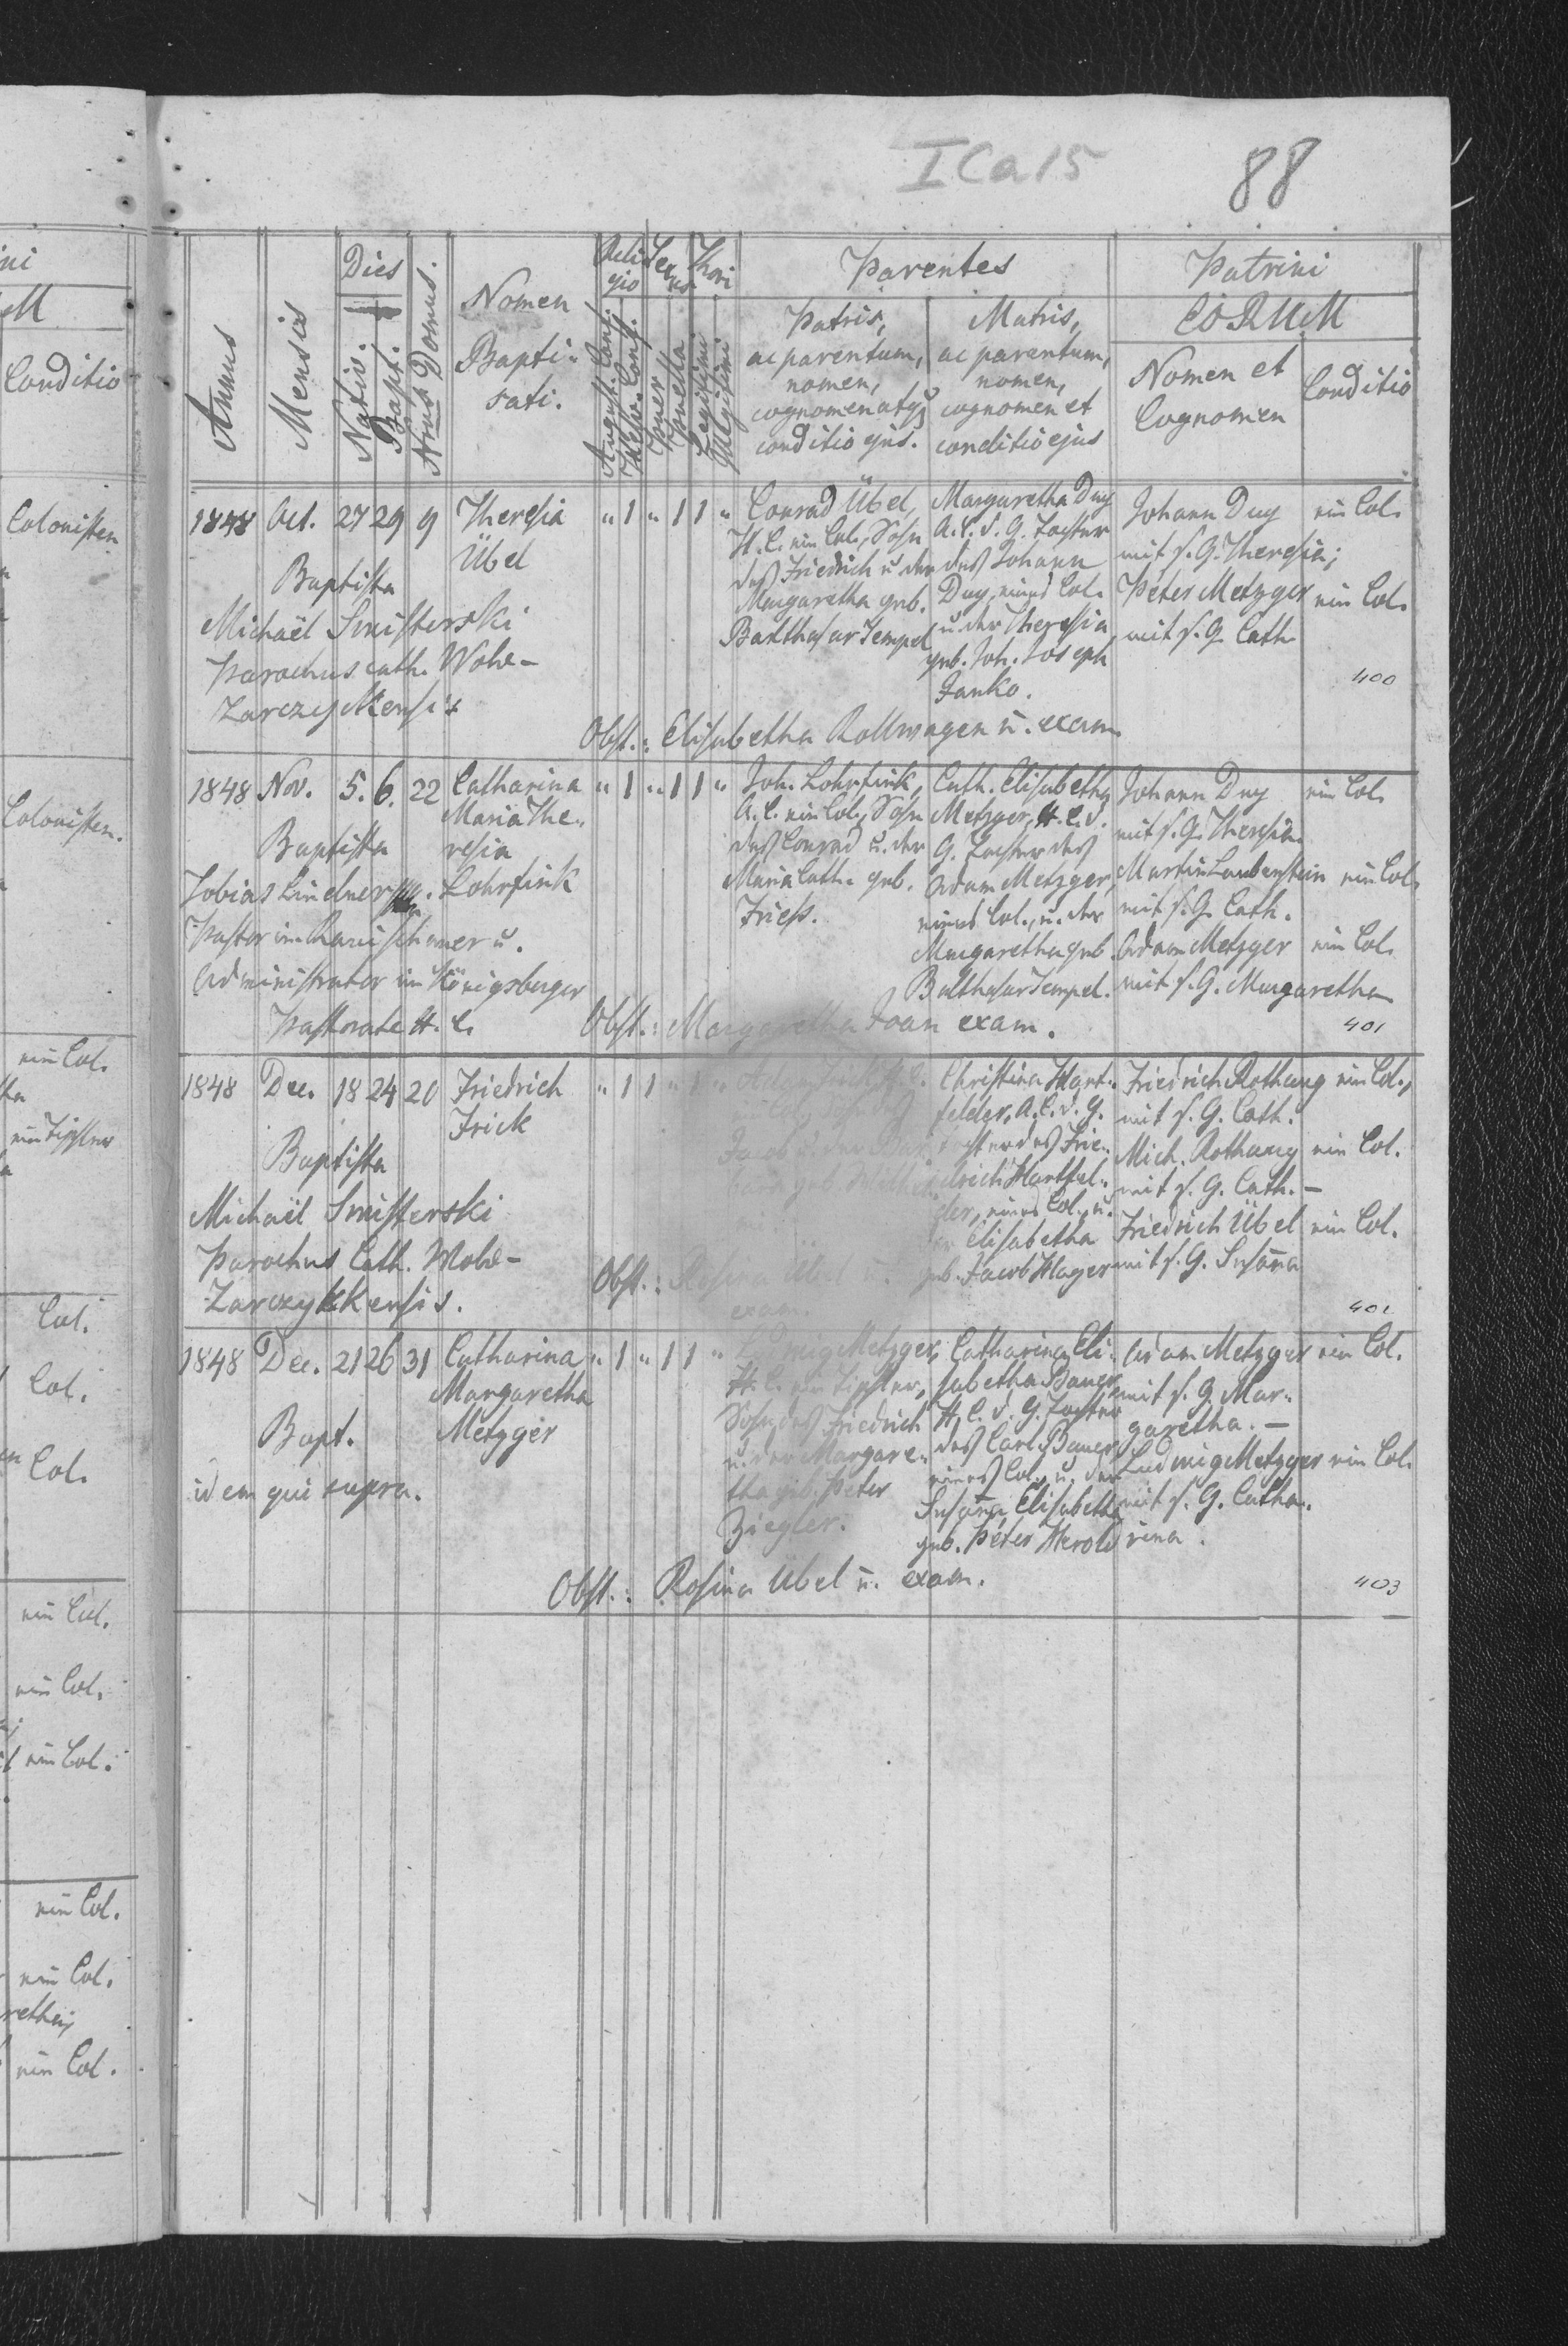 ICa15
88
Annus
Mensis
Dies
Nativ.
Bapt.
Nrus Domus.
Nomen
Bapti-
sati.
Reli
gio
Sex
us.
Thori
August. Conf.
Helv. Conf.
Puer
Puella
Legitimi
Illegitimi
Parentes
Patris,
ac parentum,
nomen,
cognomen atq
conditio ejus.
Matris,
ac parentum,
nomen,
cognomen et
conditio ejus
Patrini
EORUM
Nomen et
Cognomen
Conditio
1848 Oct. 27 29 9 Theresia
Übel
" 1 " 1 1 "
Baptista
Michaël Smisterski
Parochus cath. Wola-
Conrad Übel,
H. C. ein Col., Sohn
des Friedrich u. der
Margaretha geb.
Balthasar Tempel
Margaretha Duy
A. C. s. G. Tochter
des Johann
Duy, eines Col.
u. der Theresia
geb. Joh. Joseph
Janko.
Johann Duy ein Col.
mit s. G. Theresia;
Peter Metzger ein Col.
mit s. G. Cath.
400
Obst.: Elisabetha Rollwagen u. exam.
1848 Nov. 5. 6. 22 Catharina
Maria The-
resia
Lohrfink
" 1 " 1 1 "
Baptista
Tobias Lindner
Pastor in Ranischauer u.
Administrator im Königsberger
Pastorate H. C.
Joh. Lohrfink,
A. C. ein Col., Sohn
des Conrad u. der
Maria Cath. geb.
Friess.
Cath. Elisabetha
Metzger, H. C. s.
G. Tochter des
Adam Metzger,
eines Col., u. der
Margaretha geb.
Balthasar Tempel.
Johann Duy ein Col.
mit s. G. Theresia
Martin Laubenstein ein Col.
mit s. G. Cath.
Adam Metzger ein Col.
mit s. G. Margaretha
401
Obst.: Margaretha Joan exam.
1848 Dec. 18 24 20 Friedrich
Frick
" 1 1 " 1 "
Baptista
Michaël Smisterski
Parochus Cath. Wola-
Jacob u. der
Christina Hart-
felder, A. C. s. G.
Tochter des Frie-
drich Hartfel-
der, eines Col. u.
der Elisabetha
geb. Jacob Hager
Friedrich Rothaug ein Col.,
mit s. G. Cath.
Mich. Rothaug ein Col.
mit s. G. Cath. —
Friedrich Übel ein Col.
mit s. G. Susana
Obst.: Rosina Übel u.
exam.
1848 Dec. 21 26 31 Catharina
Margaretha
Metzger
" 1 " 1 1 "
Bapt.
idem qui supra.
Ludwig Metzger,
H. C. ein Tischler,
Sohn des Friedrich
u. der Margare-
tha geb. Peter
Ziegler.
Catharina Eli-
sabetha Bauer
H. C. s. G. Tochter
des Carl Bauer
eines Col. u. der
Susana Elisabetha
geb. Peter Herold
Adam Metzger ein Col.
mit s. G. Mar-
garetha. —
Ludwig Metzger ein Col.
mit s. G. Catha-
rina.
Obst.: Rosina Übel u. exam.
403
Conditio
Colonisten
Colonisten.
ein Col.
ein Tischler
Col.
Col.
Col.
ein Col.
ein Col.
ein Col.
ein Col.
ein Col.
ein Col.